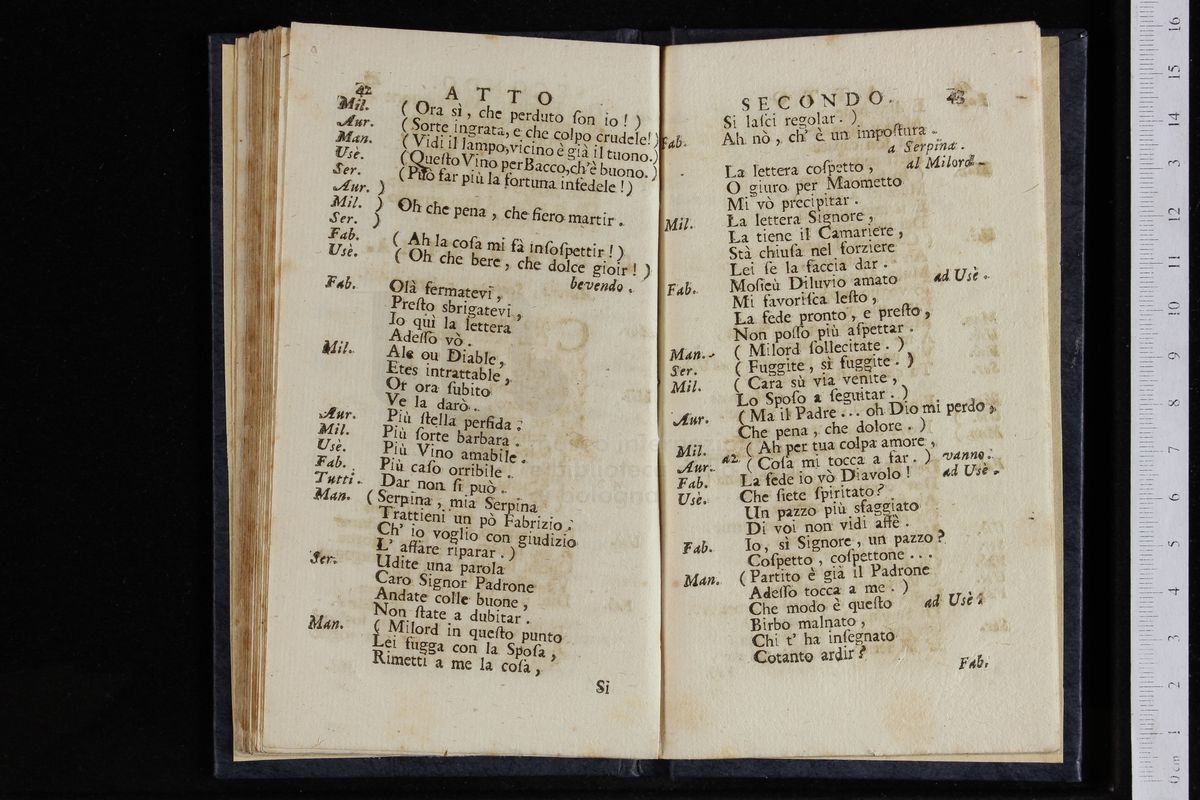 42 ATTO
Mil. ( Ora sì, che perduto ſon io ! )
Aur. ( Sorte ingrata, e che colpo crudele! )
Man. ( Vidi il lampo, vicino è già il tuono. )
Usè. ( Queſto Vino per Bacco, ch'è buono. )
Ser. ( Può far più la fortuna infedele ! )
Aur. )
Mil. ) Oh che pena , che fiero martir .
Ser. )
Fab. ( Ah la coſa mi fà inſoſpettir ! )
Usè. ( Oh che bere , che dolce gioir ! )
bevendo .
Fab. Olà fermatevi ,
Preſto sbrigatevi ,
Io quì la lettera
Adeſſo vò .
Mil. Ale ou Diable ,
Etes intrattable ,
Or ora ſubito
Ve la darò .
Aur. Più ſtella perfida .
Mil. Più ſorte barbara .
Usè. Più Vino amabile .
Fab. Più caſo orribile .
Tutti. Dar non ſi può .
Man. ( Serpina , mia Serpina
Trattieni un pò Fabrizio ,
Ch' io voglio con giudizio
L' affare riparar . )
Ser. Udite una parola
Caro Signor Padrone
Andate colle buone ,
Non ſtate a dubitar .
Man. ( Milord in queſto punto
Lei fugga con la Spoſa ,
Rimetti a me la coſa ,
Si
SECONDO. 43
Si laſci regolar . )
Fab. Ah nò , ch' è un impoſtura .
a Serpina .
La lettera coſpetto , al Milord .
O giuro per Maometto
Mi vò precipitar .
Mil. La lettera Signore ,
La tiene il Camariere ,
Stà chiuſa nel forziere
Lei ſe la faccia dar .
Fab. Moſieù Diluvio amato ad Usè .
Mi favoriſca leſto ,
La fede pronto , e preſto ,
Non poſſo più aſpettar .
Man. ( Milord ſollecitate . )
Ser. ( Fuggite , sì fuggite . )
Mil. ( Cara sù via venite ,
Lo Spoſo a ſeguitar . )
Aur. ( Ma il Padre ... oh Dio mi perdo ,
Che pena , che dolore . )
Mil. ( Ah per tua colpa amore ,
Aur. a2. ( Coſa mi tocca a far . ) vanno .
Fab. La fede io vò Diavolo ! ad Usè .
Usè. Che ſiete ſpiritato ?
Un pazzo più sfaggiato
Di voi non vidi affè .
Fab. Io, sì Signore , un pazzo ?
Coſpetto , coſpettone ...
Man. ( Partito è già il Padrone
Adeſſo tocca a me . )
Che modo è queſto ad Usè .
Birbo malnato ,
Chi t' ha inſegnato
Cotanto ardir ?
Fab.
0 cm 1 2 3 4 5 6 7 8 9 10 11 12 13 14 15 16